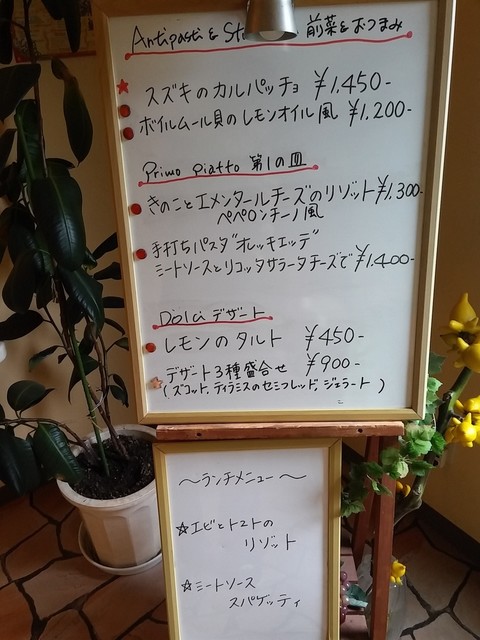 Antipasti & St 前菜&おつまみ
★ スズキのカルパッチョ ¥1,450-
● ボイルムール貝のレモンオイル風 ¥1,200-
Primo Piatto 第1の皿
● きのことエメンタールチーズのリゾット ¥1,300-
ペペロンチーノ風
● 手打ちパスタ"オレッキエッテ"
ミートソースとリコッタサラータチーズで ¥1,400-
Dolci デザート
● レモンのタルト ¥450-
☆ デザート3種盛合せ ¥900-
(ズコット、ティラミスのセミフレッド、ジェラート)
〜ランチメニュー〜
☆エビとトマトの
リゾット
☆ミートソース
スパゲッティ